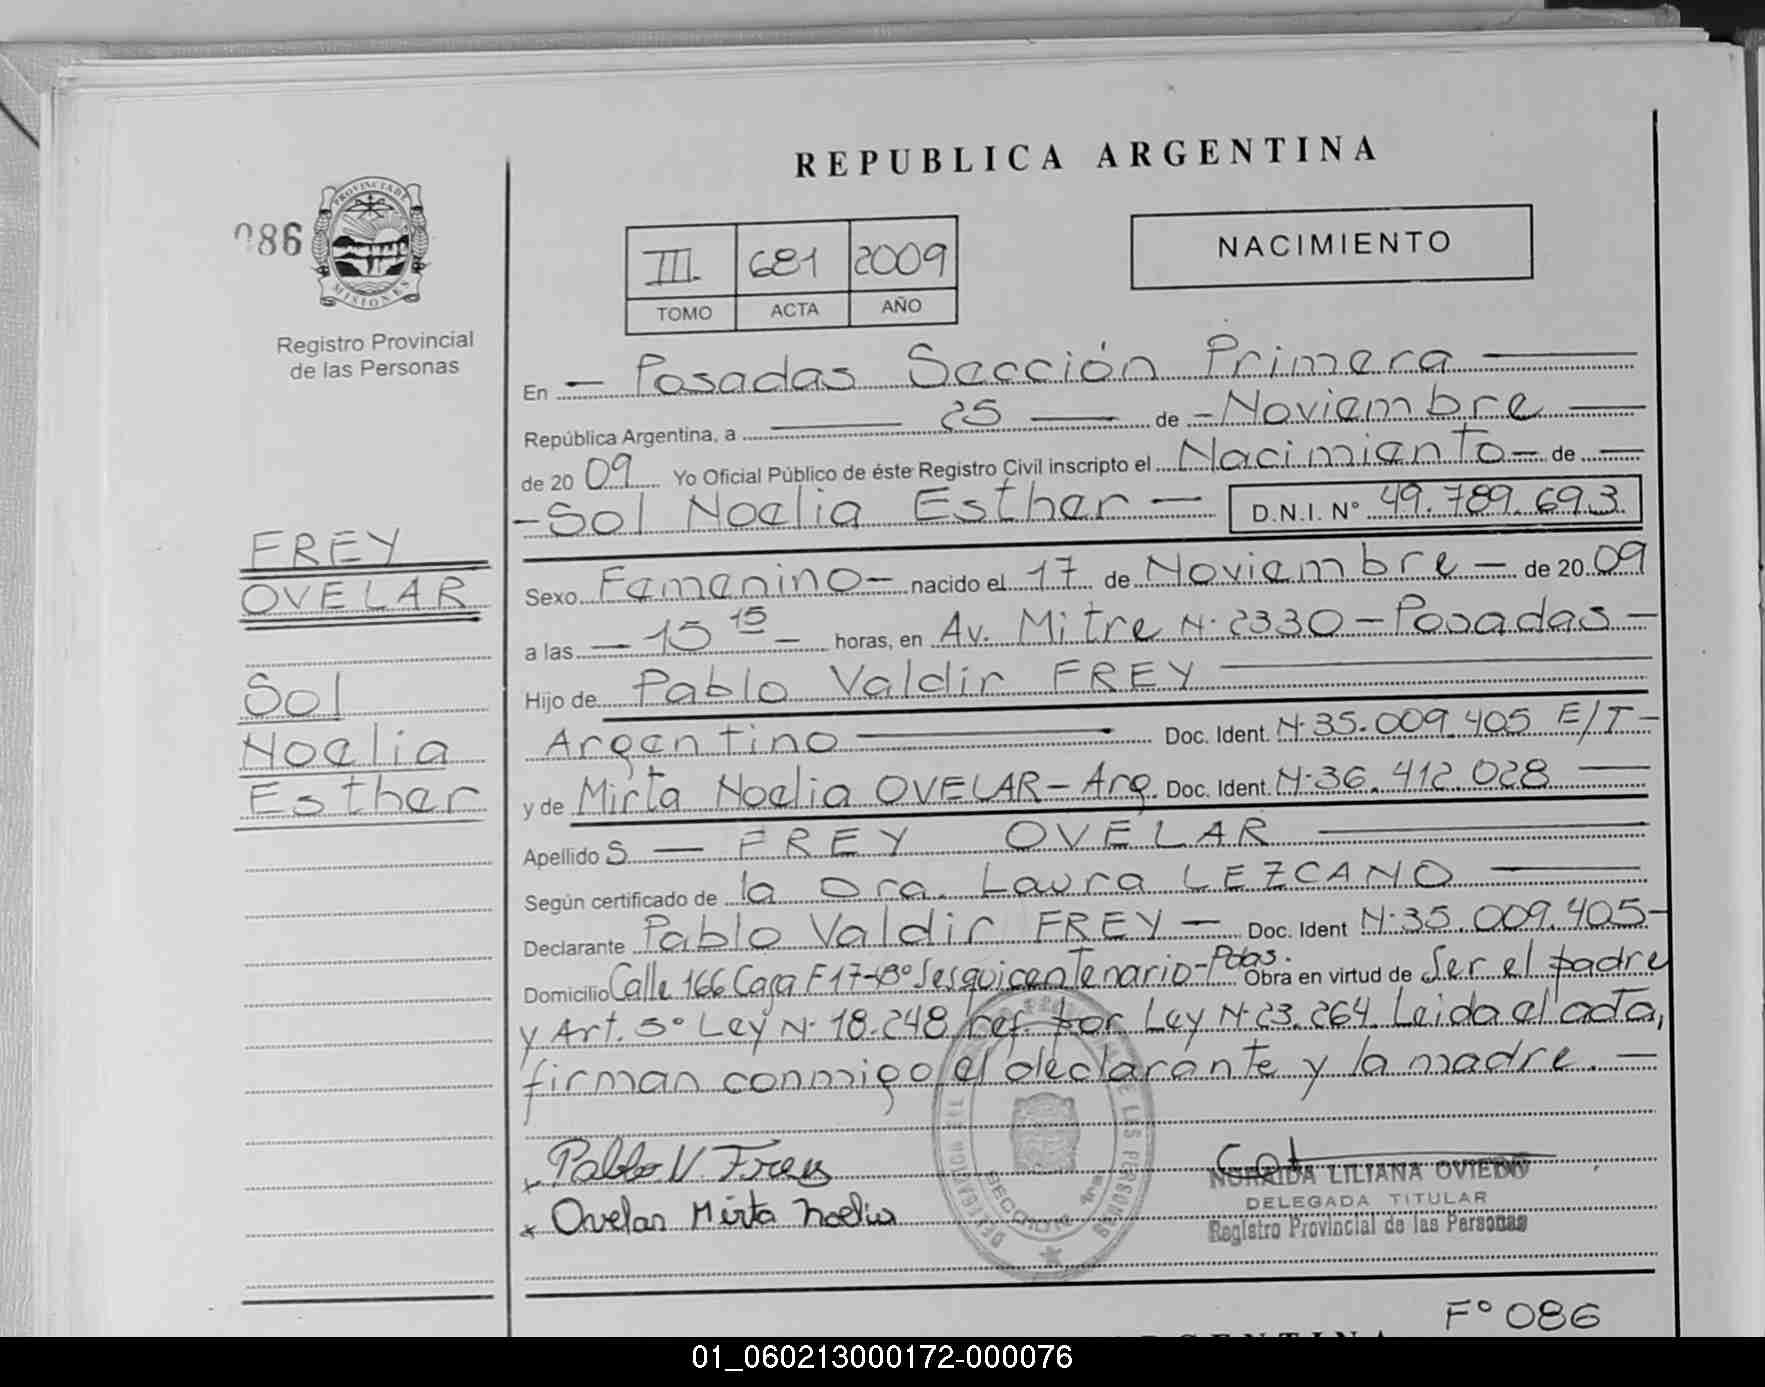 REPUBLICA ARGENTINA
086
PROVINCIA DE
MISIONES
Registro Provincial
de las Personas
III. 681 2009
TOMO ACTA AÑO
NACIMIENTO
En — Posadas Sección Primera —
República Argentina, a — 25 — de - Noviembre —
de 20 09 Yo Oficial Público de éste Registro Civil inscripto el Nacimiento — de —
- Sol Noelia Esther — D.N.I. N° 49.789.693
FREY
OVELAR
Sol
Noelia
Esther
Sexo Femenino — nacido el 17 de Noviembre — de 20 09
a las — 15 15 — horas, en Av. Mitre N· 2330 - Posadas -
Hijo de Pablo Valdir FREY —
Argentino — Doc. Ident. N· 35.009.405 E/T -
y de Mirta Noelia OVELAR - Arg. Doc. Ident. N· 36.412.028 —
Apellido S — FREY OVELAR —
Según certificado de la Dra. Laura LEZCANO —
Declarante Pablo Valdir FREY — Doc. Ident N· 35.009.405 -
Domicilio Calle 166 Casa F17-B° Sesquicentenario - Pdas. Obra en virtud de Ser el padre
y Art. 5° Ley N· 18.248 ref. por Ley N· 23.264. Leida el acta,
firman conmigo el declarante y la madre. —
Pablo V. Frey
x Ovelar Mirta Noelia
NORAIDA LILIANA OVIEDO
DELEGADA TITULAR
Registro Provincial de las Personas
F° 086
01_060213000172-000076